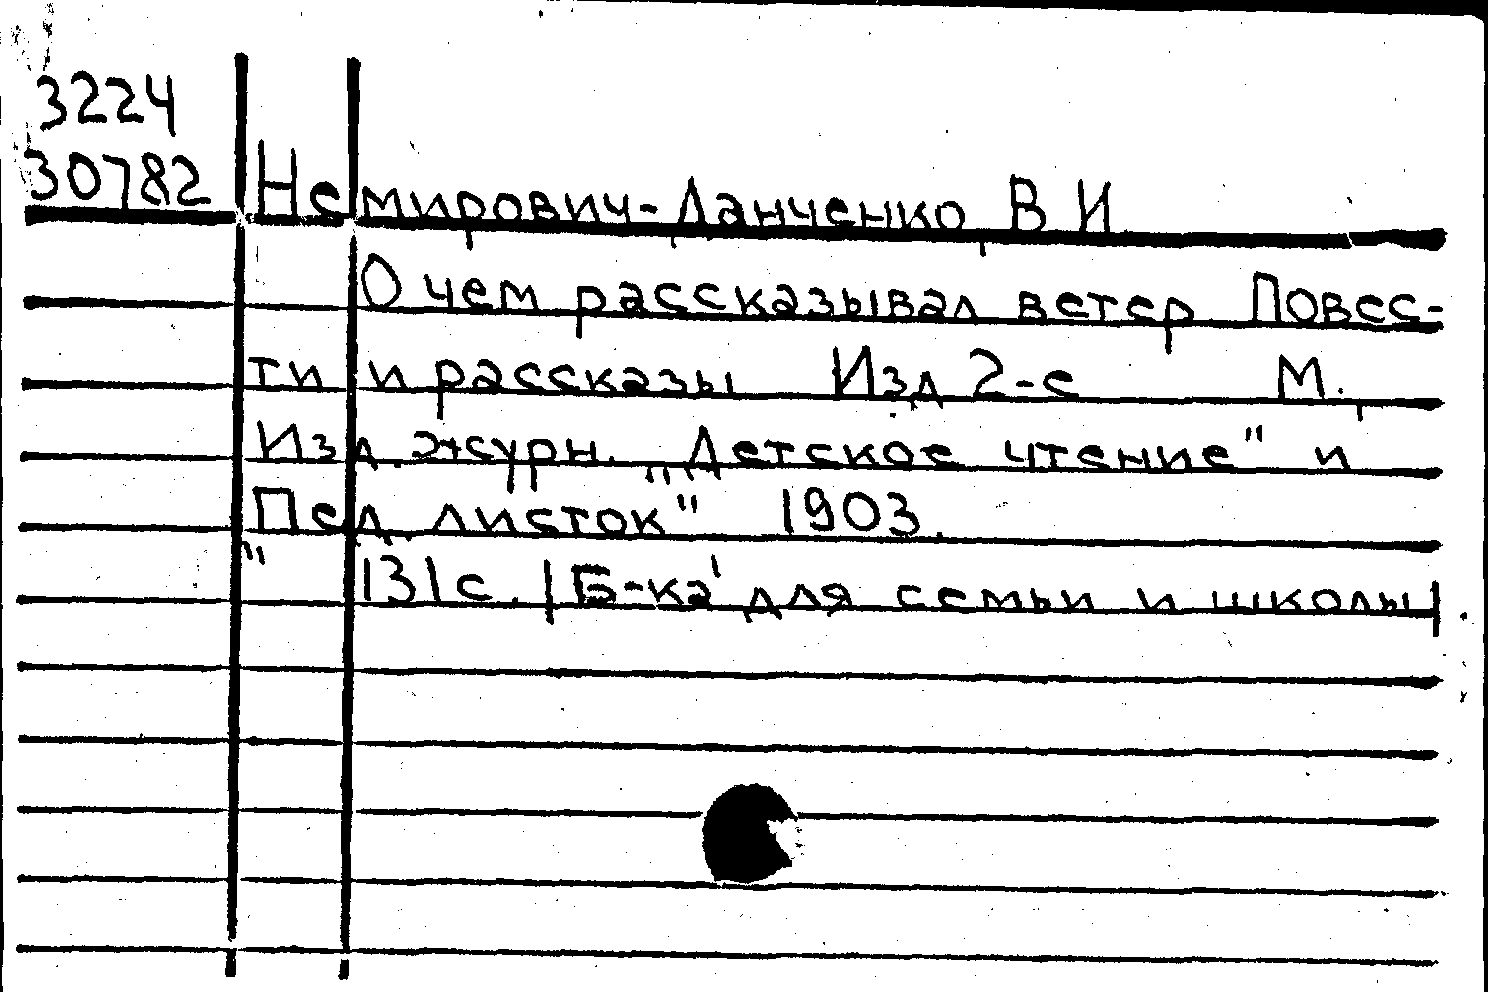 3224
30782
Немирович-Данченко, В И.
О чем рассказывал ветер. Повес-
ти и рассказы. Изд. 2-е. М.,
Изд. журн. „Детское чтение" и
„Пед. листок" 1903.
131 с. |Б-ка для семьи и школы|.